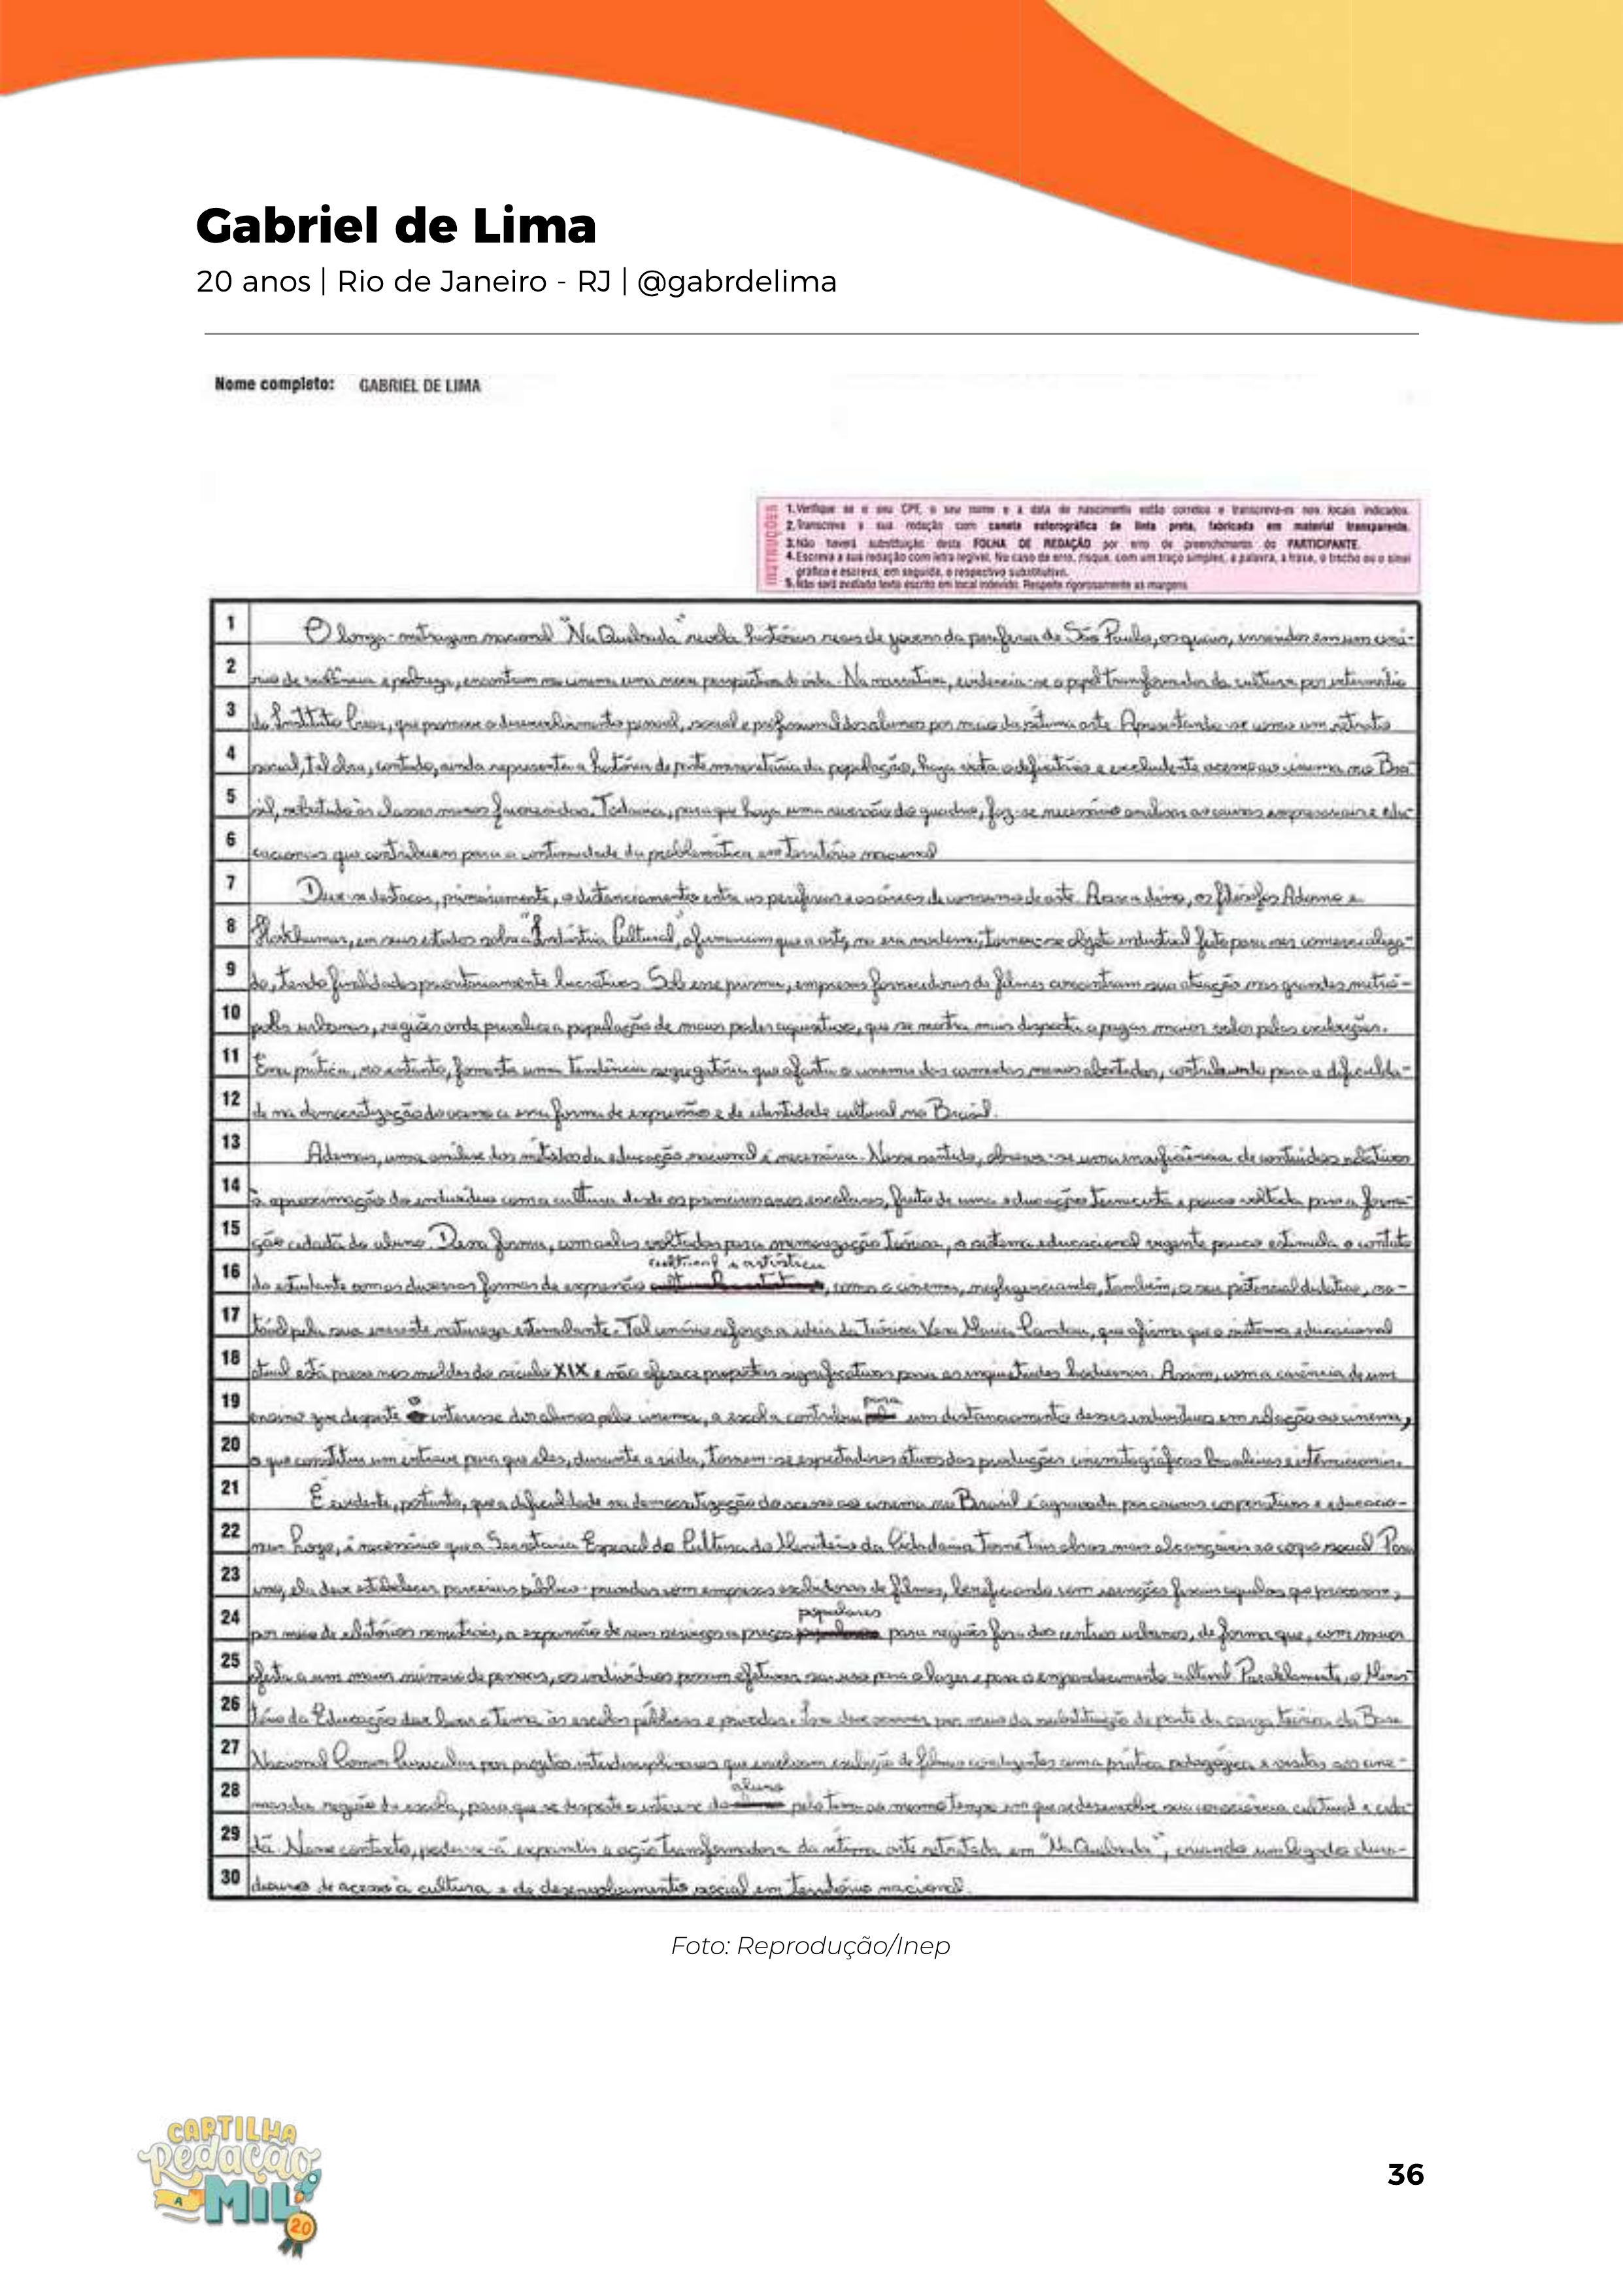 Gabriel de Lima
20 anos | Rio de Janeiro - RJ | @gabrdelima
Nome completo: GABRIEL DE LIMA
INSTRUÇÕES
1. Verifique se o seu CPF, o seu nome e a data de nascimento estão corretos e transcreva-os nos locais indicados.
2. Transcreva a sua redação com caneta esferográfica de tinta preta, fabricada em material transparente.
3. Não haverá substituição desta FOLHA DE REDAÇÃO por erro de preenchimento do PARTICIPANTE.
4. Escreva a sua redação com letra legível. No caso de erro, risque, com um traço simples, a palavra, a frase, o trecho ou o sinal
gráfico e escreva, em seguida, o respectivo substitutivo.
5. Não será avaliado texto escrito em local indevido. Respeite rigorosamente as margens.
1 O longa-metragem nacional "Na Quebrada" revela histórias reais de jovens da periferia de São Paulo, os quais, inseridos em um cená-
2 rio de violência e pobreza, encontram no cinema uma nova perspectiva de vida. Na narrativa, evidencia-se o papel transformador da cultura por intermédio
3 do Instituto Criar, que promove o desenvolvimento pessoal, social e profissional dos alunos por meio da sétima arte. Apresentando-se como um retrato
4 social, tal obra, contudo, ainda representa a história de parte minoritária da população, haja vista o deficitário e excludente acesso ao cinema no Bra-
5 sil, sobretudo às classes menos favorecidas. Todavia, para que haja uma reversão do quadro, faz-se necessário analisar as causas empresariais e edu-
6 cacionais que contribuem para a continuidade da problemática em território nacional
7 Deve-se destacar, primeiramente, o distanciamento entre as periferias e as áreas de consumo de arte. Acerca disso, os filósofos Adorno e
8 Horkheimer, em seus estudos sobre a "Indústria Cultural", afirmaram que a arte, na era moderna, tornou-se objeto industrial feito para ser comercializa-
9 do, tendo finalidades prioritariamente lucrativas. Sob esse prisma, empresas fornecedoras de filmes concentram sua atenção nas grandes metró-
10 poles urbanas, regiões onde prevalece a população de maior poder aquisitivo, que se mostra mais disposta a pagar maior valor pelas exibições.
11 Essa prática, no entanto, fomenta uma tendência segregatória que afasta o cinema das camadas menos abastadas, contribuindo para a dificulda-
12 de na democratização do acesso a essa forma de expressão e de identidade cultural no Brasil.
13 Ademais, uma análise dos métodos da educação nacional é necessária. Nesse sentido, observa-se uma insuficiência de conteúdos relativos
14 à aproximação do indivíduo com a cultura desde os primeiros anos escolares, fruto de uma educação tecnicista e pouco voltada para a forma-
15 ção cidadã do aluno. Dessa forma, com aulas voltadas para memorização teórica, o sistema educacional vigente pouco estimula o contato
16 do estudante com as diversas formas de expressão cultural e artística, como o cinema, negligenciando, também, o seu potencial didático, no-
17 tável pela sua inerente natureza estimulante. Tal cenário reforça a ideia da teórica Vera Maria Candau, que afirma que o sistema educacional
18 atual está preso nos moldes do século XIX e não oferece propostas significativas para as inquietudes hodiernas. Assim, com a carência de um
19 ensino que desperte o interesse dos alunos pelo cinema, a escola contribui para um distanciamento desses indivíduos em relação ao cinema,
20 o que constitui um entrave para que eles, durante a vida, tornem-se espectadores ativos das produções cinematográficas brasileiras e internacionais.
21 É evidente, portanto, que a dificuldade na democratização do acesso ao cinema no Brasil é agravada por causas corporativas e educacio-
22 nais. Logo, é necessário que a Secretaria Especial de Cultura do Ministério da Cidadania torne tais obras mais alcançáveis ao corpo social. Para
23 isso, ela deve estabelecer parcerias público-privadas com empresas exibidoras de filmes, beneficiando com isenções fiscais aquelas que provarem,
24 por meio de relatórios semestrais, a expansão de seus serviços a preços populares para regiões fora dos centros urbanos, de forma que, com maior
25 oferta a um maior número de pessoas, os indivíduos possam efetivar seu uso para o lazer e para o engrandecimento cultural. Paralelamente, o Minis-
26 tério da Educação deve levar o tema às escolas públicas e privadas. Isso deve ocorrer por meio da substituição de parte da carga teórica da Base
27 Nacional Comum Curricular por projetos interdisciplinares que envolvam exibição de filmes condizentes com a prática pedagógica e visitas aos cine-
28 mas da região da escola, para que se desperte o interesse do aluno pelo tema ao mesmo tempo em que se desenvolve sua consciência cultural e cida-
29 dã. Nesse contexto, poder-se-á expandir a ação transformadora da sétima arte retratada em "Na Quebrada", criando um legado dura-
30 douro de acesso à cultura e de desenvolvimento social em território nacional.
Foto: Reprodução/Inep
CARTILHA
Redação
A
MIL
20
36